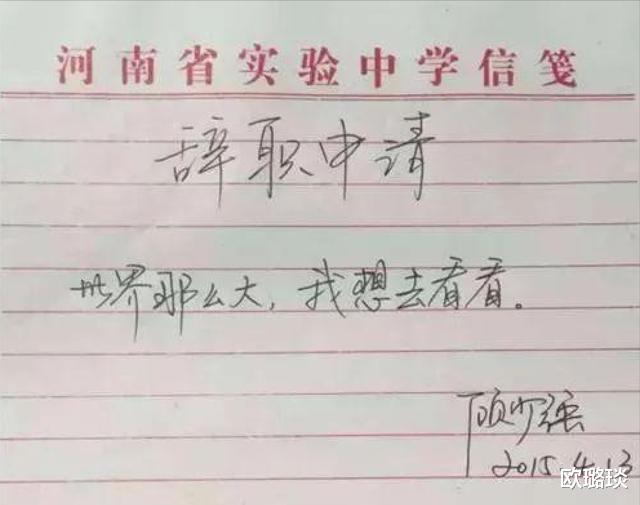 河南省实验中学信笺
辞职申请
世界那么大，我想去看看。
顾少强
2015.4.13
欧璐琰